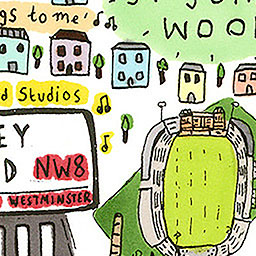 gs to me'
WOO
d Studios
EY
D NW8
WESTMINSTER